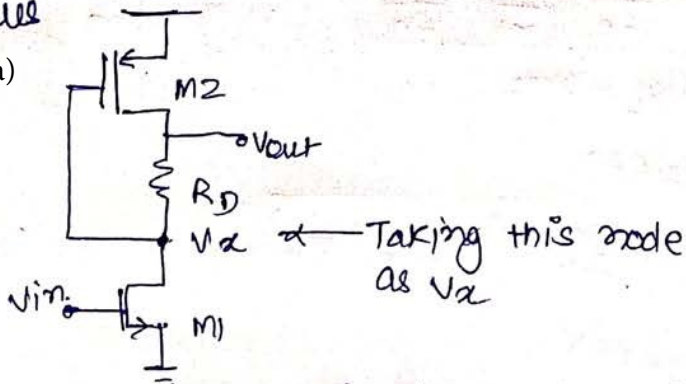 a)
M2
Vout
RD
Vx ← Taking this node
as Vx
Vin
M1